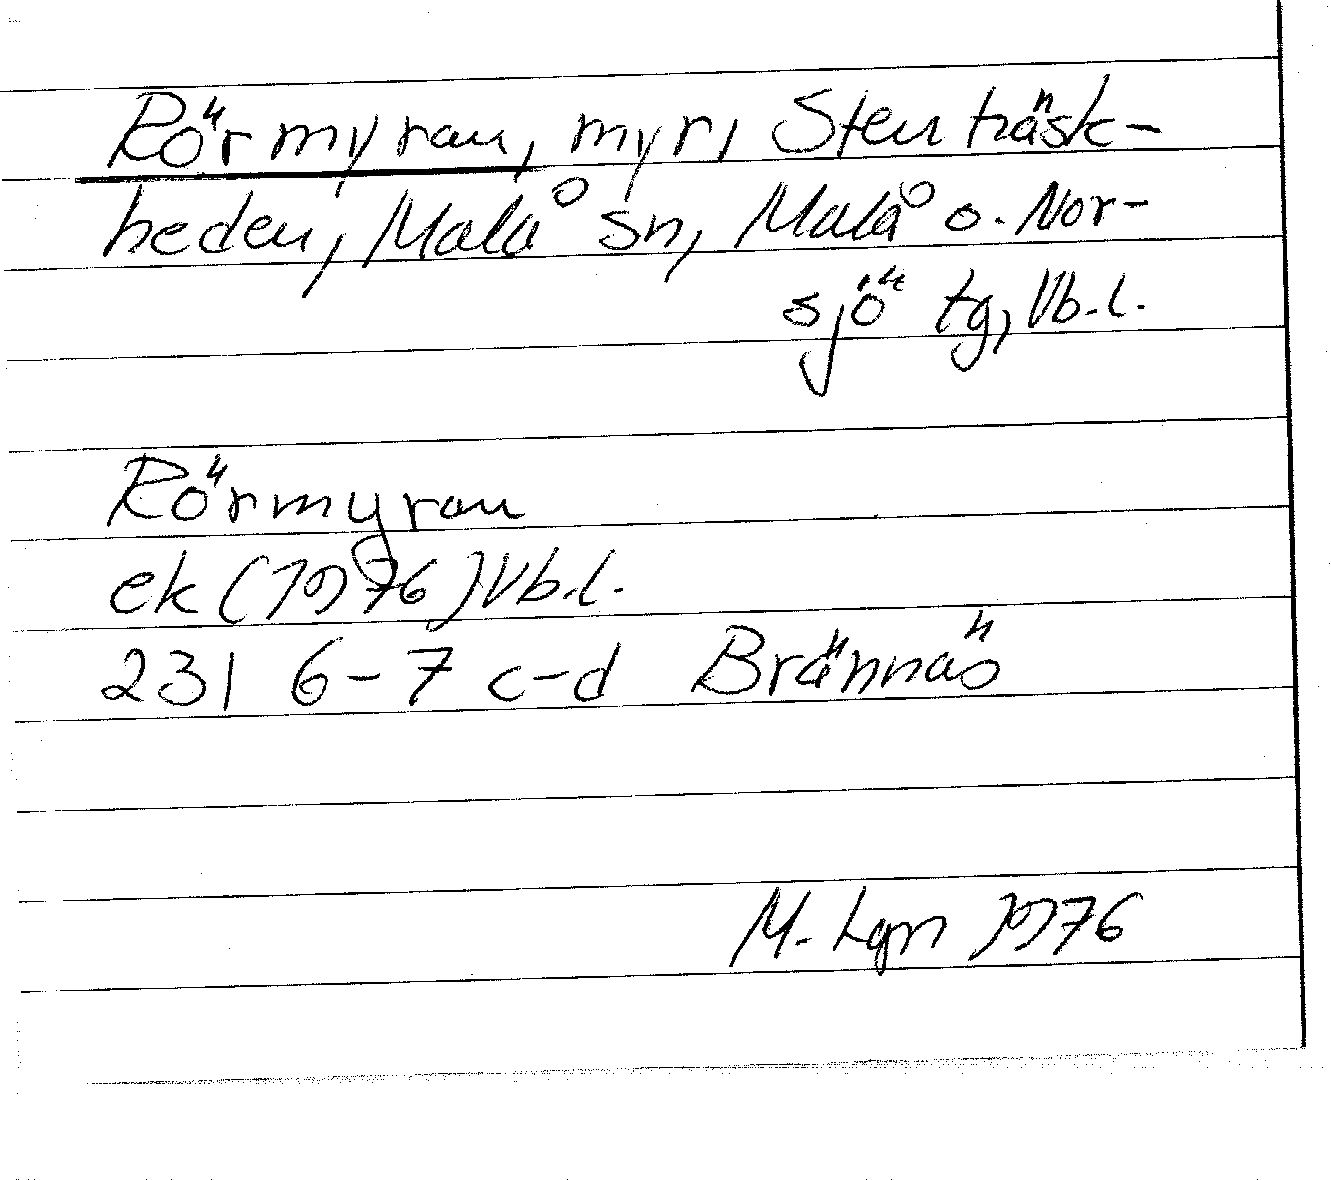 Rörmyran, myr, Stenträsk-
heden, Malå sn, Malå o. Nor-
sjö tg, Vb.l.
Rörmyran
ek (1976) Vb.l.
23I 6-7 c-d Brännäs
M. Lgn 1976